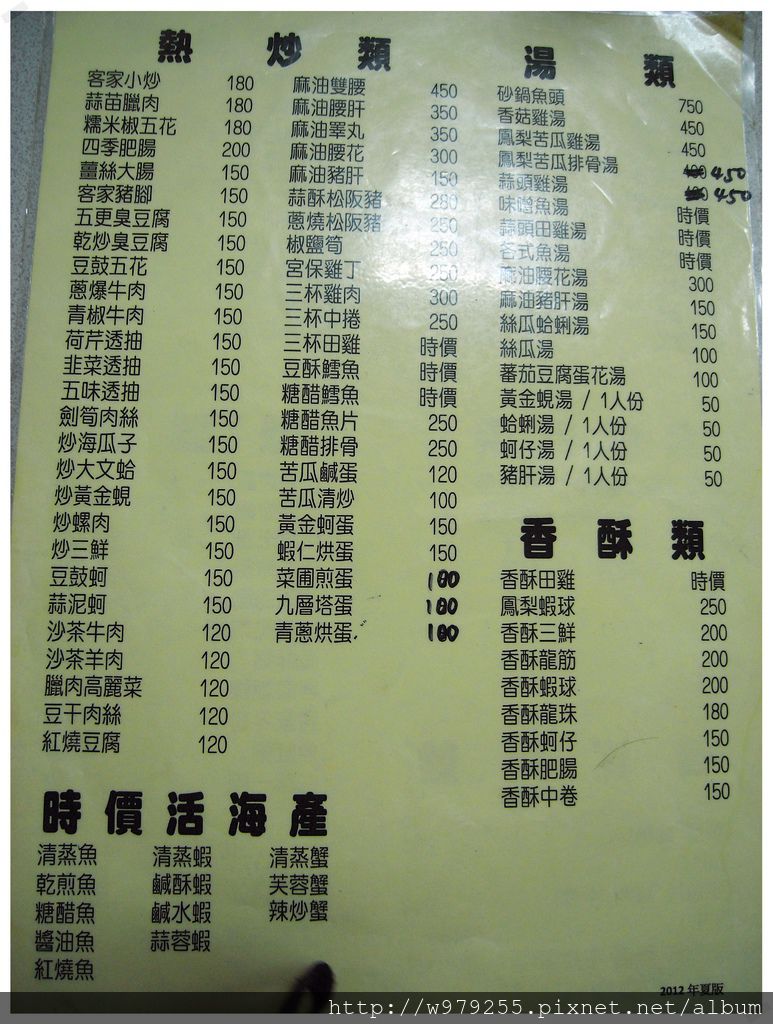 熱炒類
客家小炒 180
蒜苗臘肉 180
糯米椒五花 180
四季肥腸 200
薑絲大腸 150
客家豬腳 150
五更臭豆腐 150
乾炒臭豆腐 150
豆鼓五花 150
蔥爆牛肉 150
青椒牛肉 150
荷芹透抽 150
韭菜透抽 150
五味透抽 150
劍筍肉絲 150
炒海瓜子 150
炒大文蛤 150
炒黃金蜆 150
炒螺肉 150
炒三鮮 150
豆鼓蚵 150
蒜泥蚵 150
沙茶牛肉 120
沙茶羊肉 120
臘肉高麗菜 120
豆干肉絲 120
紅燒豆腐 120
麻油雙腰 450
麻油腰肝 350
麻油睪丸 350
麻油腰花 300
麻油豬肝 150
蒜酥松阪豬 280
蔥燒松阪豬 250
椒鹽筍 250
宮保雞丁 250
三杯雞肉 300
三杯中捲 250
三杯田雞 時價
豆酥鱈魚 時價
糖醋鱈魚 時價
糖醋魚片 250
糖醋排骨 250
苦瓜鹹蛋 120
苦瓜清炒 100
黃金蚵蛋 150
蝦仁烘蛋 150
菜圃煎蛋 100
九層塔蛋 100
青蔥烘蛋 100
湯類
砂鍋魚頭 750
香菇雞湯 450
鳳梨苦瓜雞湯 450
鳳梨苦瓜排骨湯 450
蒜頭雞湯 450
味噌魚湯 時價
蒜頭田雞湯 時價
各式魚湯 時價
麻油腰花湯 300
麻油豬肝湯 150
絲瓜蛤蜊湯 150
絲瓜湯 100
蕃茄豆腐蛋花湯 100
黃金蜆湯 / 1人份 50
蛤蜊湯 / 1人份 50
蚵仔湯 / 1人份 50
豬肝湯 / 1人份 50
香酥類
香酥田雞 時價
鳳梨蝦球 250
香酥三鮮 200
香酥龍筋 200
香酥蝦球 200
香酥龍珠 180
香酥蚵仔 150
香酥肥腸 150
香酥中卷 150
時價活海產
清蒸魚 清蒸蝦 清蒸蟹
乾煎魚 鹹酥蝦 芙蓉蟹
糖醋魚 鹹水蝦 辣炒蟹
醬油魚 蒜蓉蝦
紅燒魚
2012 年夏版
http://w979255.pixnet.net/album